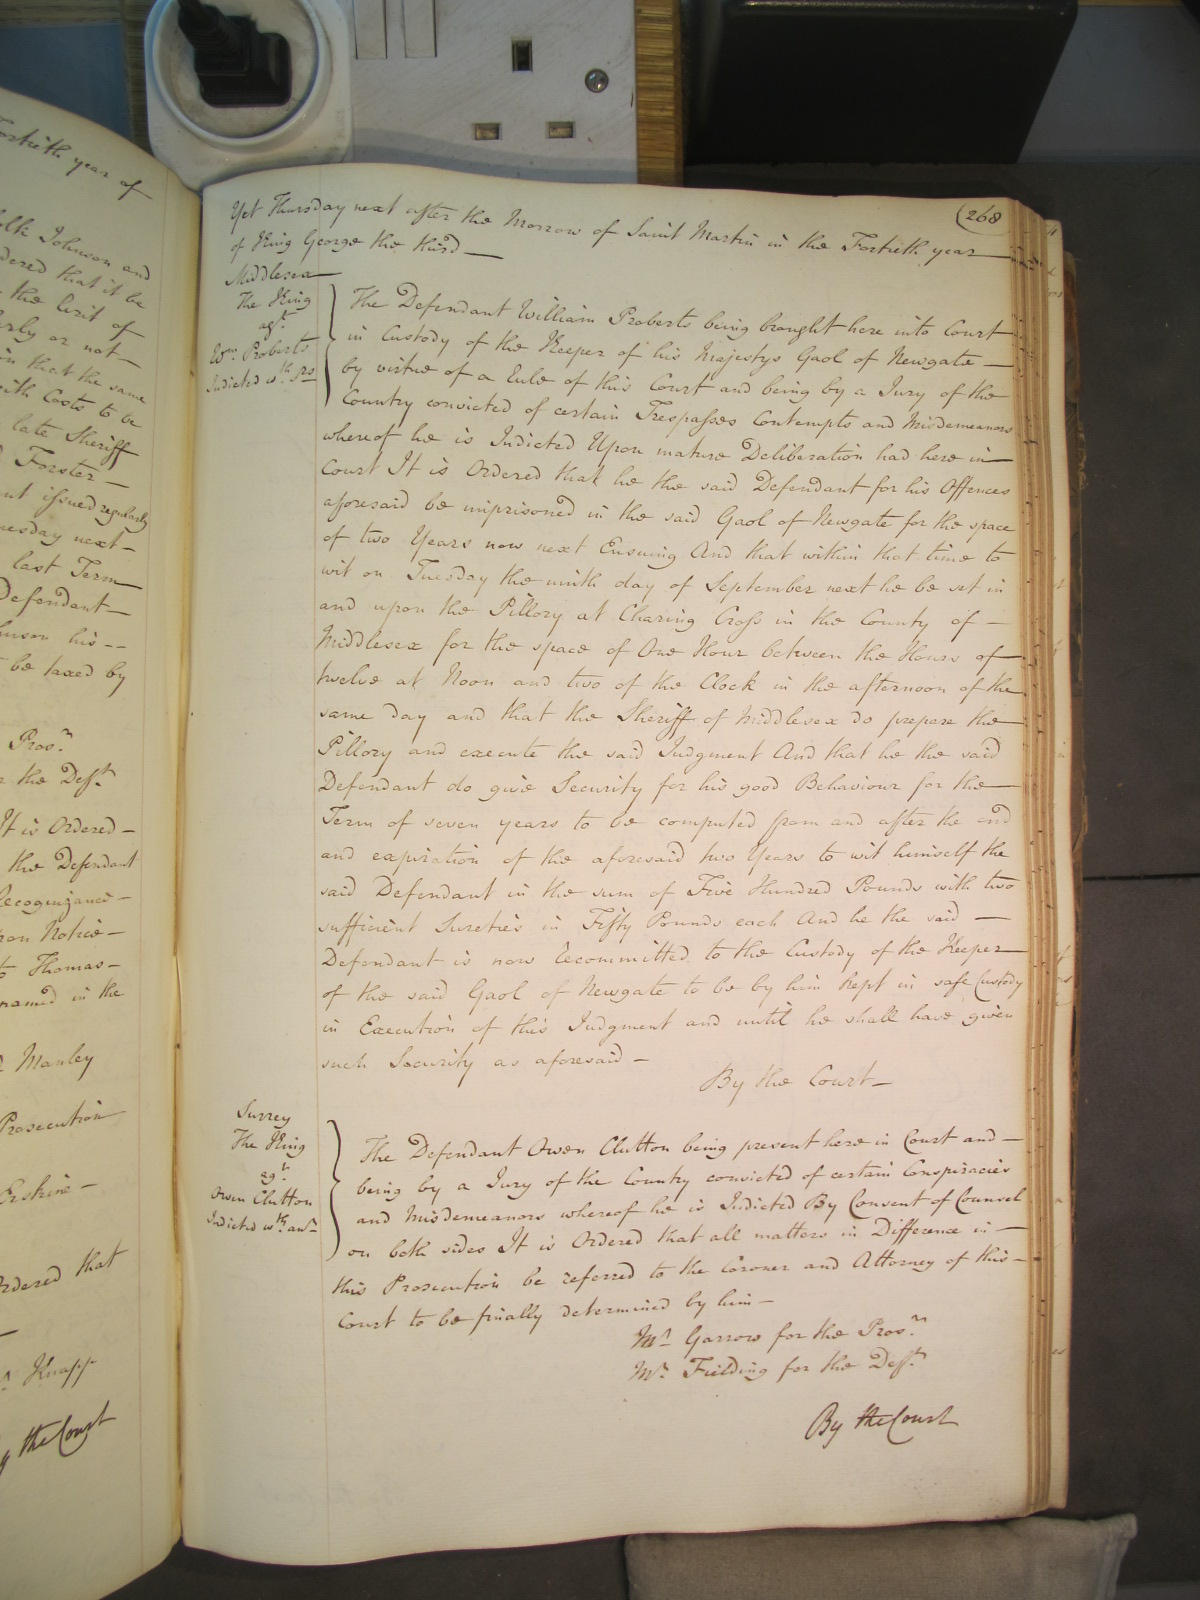 Fortieth year of
folk Johnson and
dered that it be
the Writ of
arly or not
in that the same
with Costs to be
late Sheriff
Forster
nt issued regularly
nesday next
last Term
Defendant
hnson his
be taxed by
Pros.r
r the Def.t
It is Ordered
the Defendant
Recognizance
pon Notice
to Thomas
named in the
Manley
Prosecution
Erskine
Ordered that
Knapp
y the Court
(268
Yet Thursday next after the Morrow of Saint Martin in the Fortieth year
of King George the third
Middlesex
The King
ag.t
W.m Proberts
Indicted w.th
The Defendant William Proberts being brought here into Court
in Custody of the Keeper of his Majestys Gaol of Newgate
by virtue of a Rule of this Court and being by a Jury of the
Country convicted of certain Trespasses Contempts and Misdemeanors
whereof he is Indicted Upon mature Deliberation had here in
Court It is Ordered that he the said Defendant for his Offences
aforesaid be imprisoned in the said Gaol of Newgate for the space
of two Years now next Ensuing And that within that time to
wit on Tuesday the ninth day of September next he be set in
and upon the Pillory at Charing Cross in the County of
Middlesex for the space of One Hour between the Hours of
twelve at Noon and two of the Clock in the afternoon of the
same day and that the Sheriff of Middlesex do prepare the
Pillory and execute the said Judgment And that he the said
Defendant do give Security for his good Behaviour for the
Term of seven years to be computed from and after the end
and expiration of the aforesaid two Years to wit himself the
said Defendant in the sum of Five Hundred Pounds with two
sufficient Sureties in Fifty Pounds each And he the said
Defendant is now Recommitted to the Custody of the Keeper
of the said Gaol of Newgate to be by him kept in safe Custody
in Execution of this Judgment and until he shall have given
such Security as aforesaid
By the Court
Surrey
The King
ag.t
Owen Clutton
Indicted w.th an.r
The Defendant Owen Clutton being present here in Court and
being by a Jury of the Country convicted of certain Conspiracies
and Misdemeanors whereof he is Indicted By Consent of Counsel
on both sides It is Ordered that all matters in Difference in
this Prosecution be referred to the Coroner and Attorney of this
Court to be finally determined by him
M.r Garrow for the Pros.n
M.r Fielding for the Def.t
By the Court